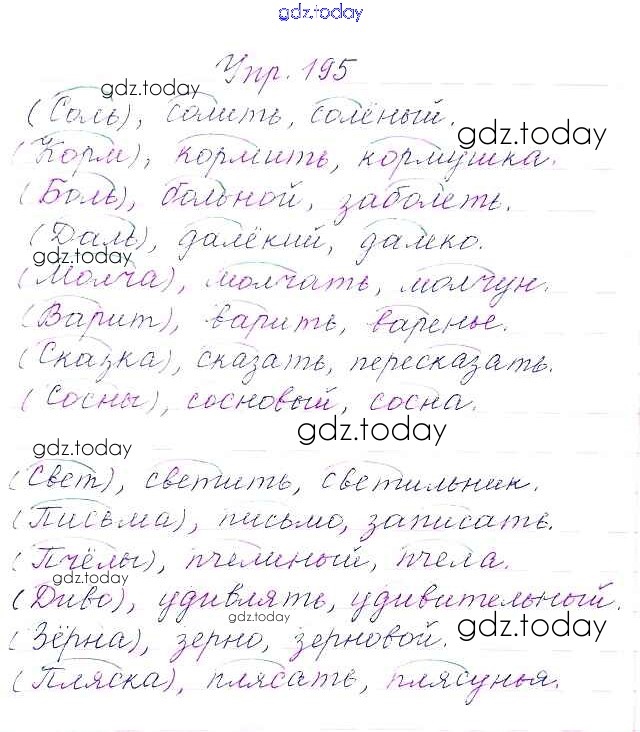 gdz.today
Упр. 195
gdz.today
(Соль), солить, солёный.
gdz.today
(Корм), кормить, кормушка.
(Боль), больной, заболеть.
(Даль), далёкий, далеко.
gdz.today
(Молча), молчать, молчун.
(Варит), варить, варенье.
(Сказка), сказать, пересказать.
(Сосны), сосновый, сосна.
gdz.today
gdz.today
(Свет), светить, светильник.
(Письма), письмо, записать.
(Пчёлы), пчелиный, пчела.
gdz.today
(Диво), удивлять, удивительный.
gdz.today
gdz.today
(Зёрна), зерно, зерновой.
(Пляска), плясать, плясунья.